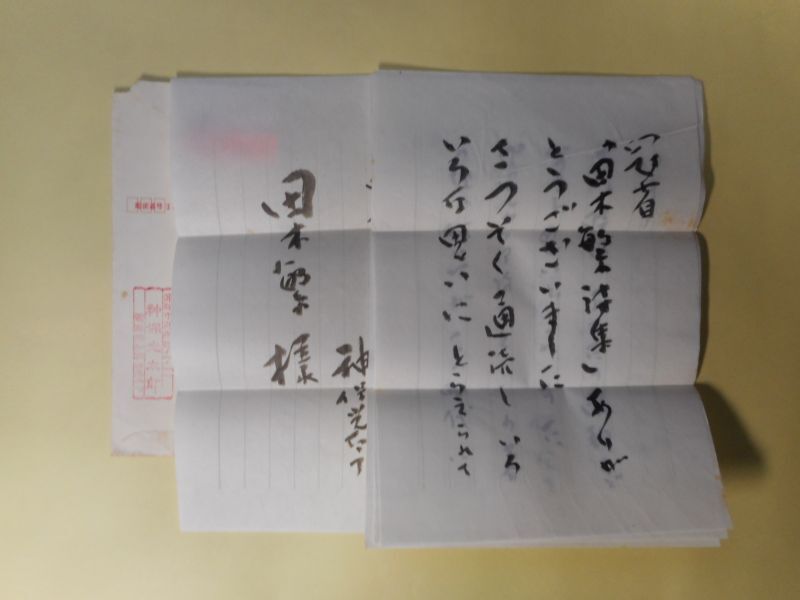 冠省
「田木繁詩集」ありが
とうございました
さつそく通読しいろ
いろな思いにとらえられて
神保光太郎
田木繁様